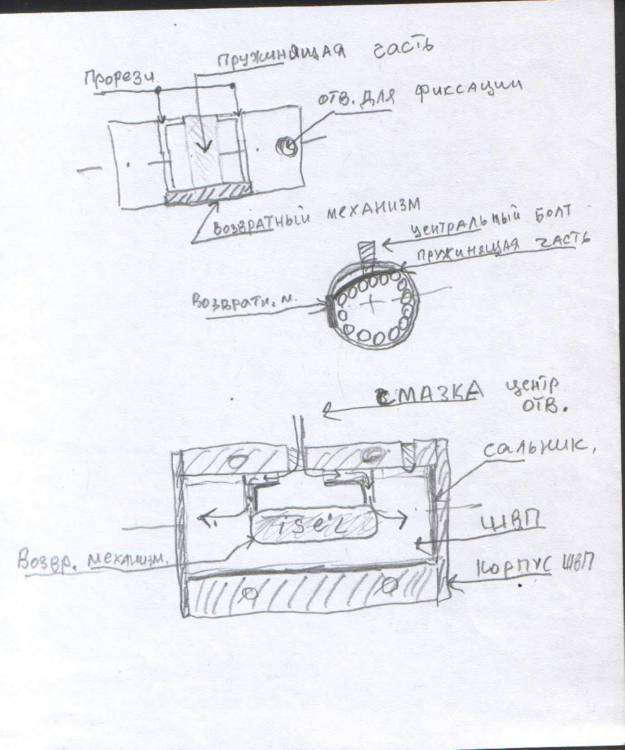 пружинящая часть
прорези
отв. для фиксации
возвратный механизм
центральный болт
пружинящая часть
возвратн. м.
смазка центр
отв.
сальник.
isel
ШВП
Возвр. механизм.
корпус ШВП